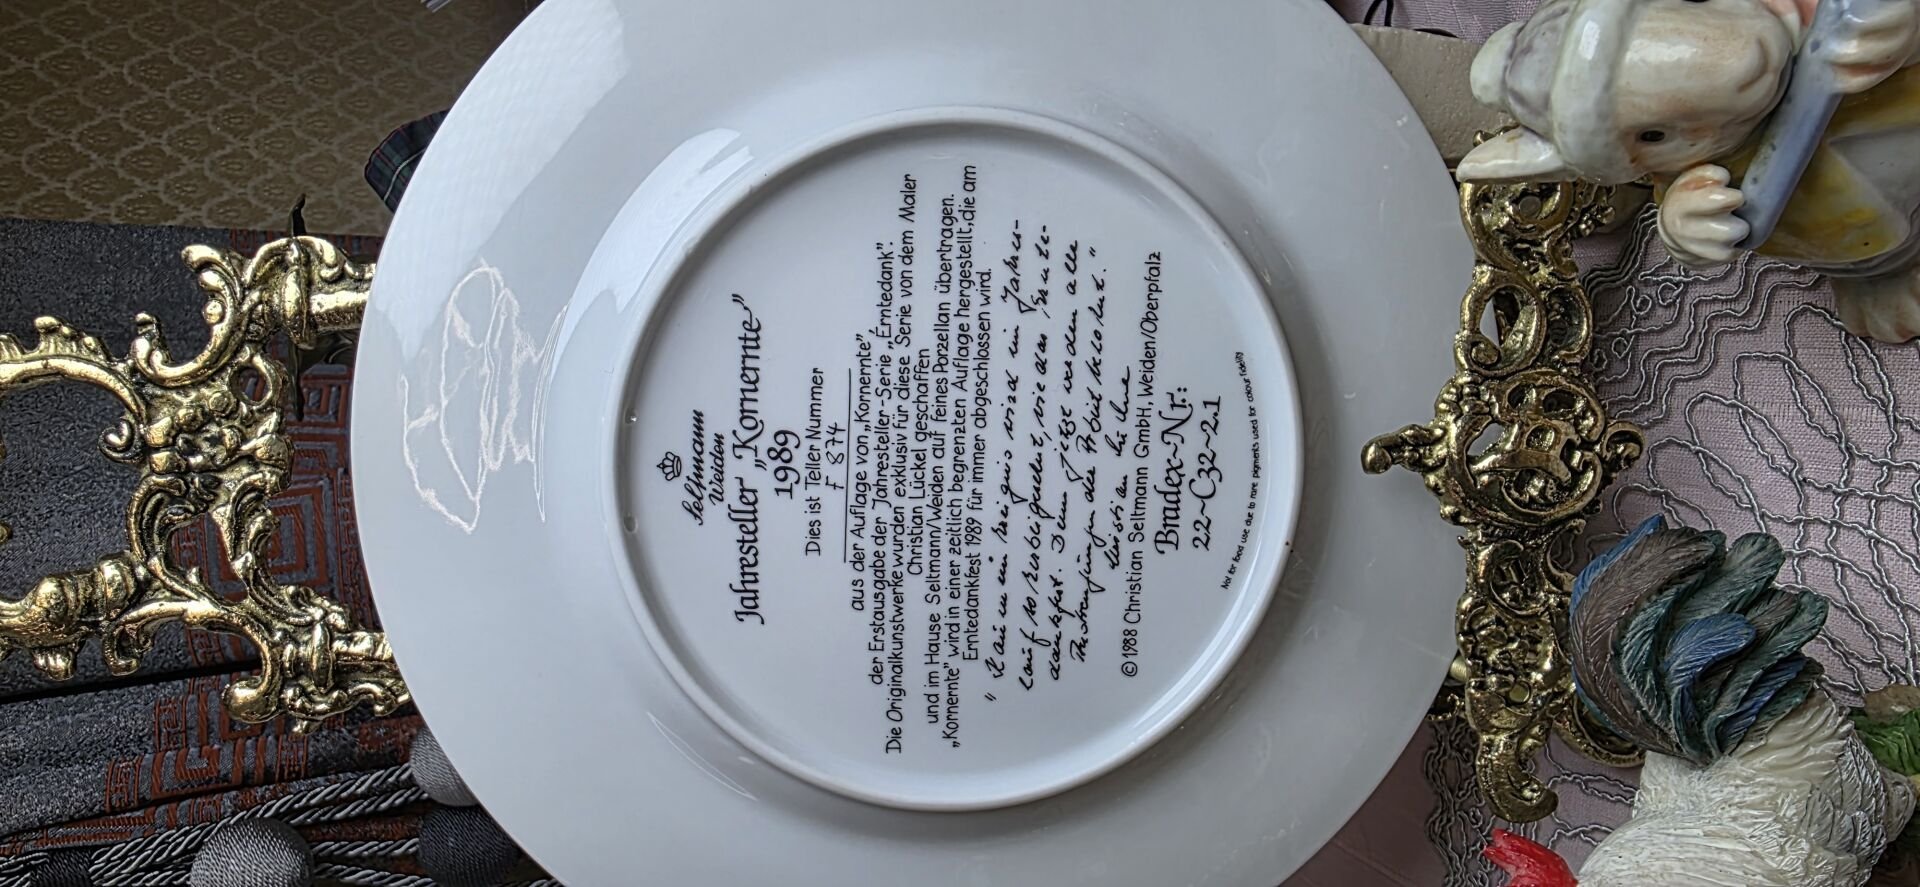 Seltmann
Weiden
Jahresteller „Kornernte”
1989
Dies ist Teller Nummer
F 874
aus der Auflage von „Kornernte”,
der Erstausgabe der Jahresteller-Serie „Erntedank”.
Die Originalkunstwerke wurden exklusiv für diese Serie von dem Maler
Christian Lückel geschaffen
und im Hause Seltmann/Weiden auf feines Porzellan übertragen.
„Kornernte” wird in einer zeitlich begrenzten Auflage hergestellt, die am
Erntedankfest 1989 für immer abgeschlossen wird.
" Kaum ein Ereignis wird im Jahres-
lauf so herbeigesehnt, wie das Ernte-
dankfest. Denn jetzt werden alle
Anstrengungen der Arbeit belohnt. "
Christian Lückel
©1988 Christian Seltmann GmbH, Weiden/Oberpfalz
Bradex~Nr.:
22~C32~2.1
Not for food use due to rare pigments used for colour fidelity